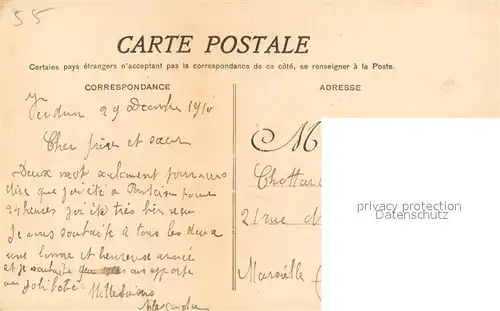 55
CARTE POSTALE
Certains pays étrangers n'acceptant pas la correspondance de ce côté, se renseigner à la Poste.
CORRESPONDANCE
Verdun 29 Decembre 1910
Cher frère et sœur
Deux mot seulement pour vous
dire que j'ai été a pour
24 heures j'ai été très bien reçu
Je vous souhaite à tous les deux
une bonne et heureuse année
et je souhaite vous apporte
un joli bébé Mille baisers
Alexandre
ADRESSE
M
21 rue d
Marseille
privacy protection
Datenschutz